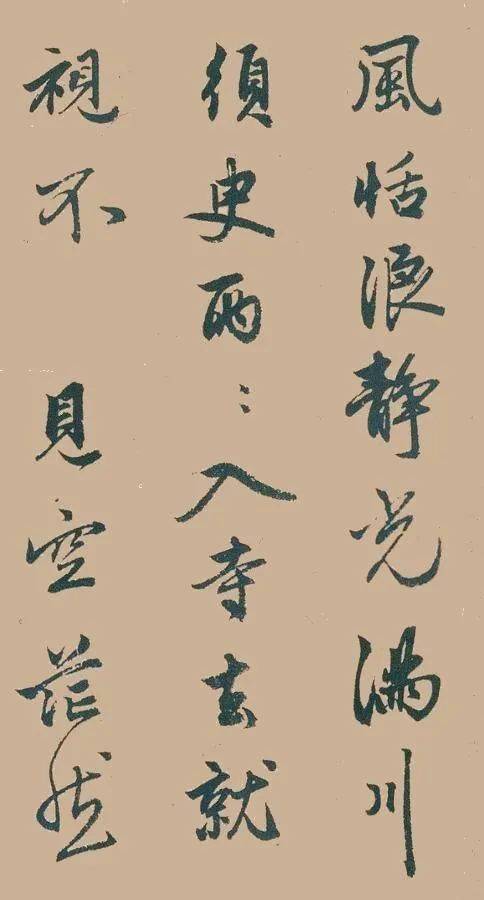 風恬浪靜光滿川
須臾兩〻入寺去就
視不見空茫然